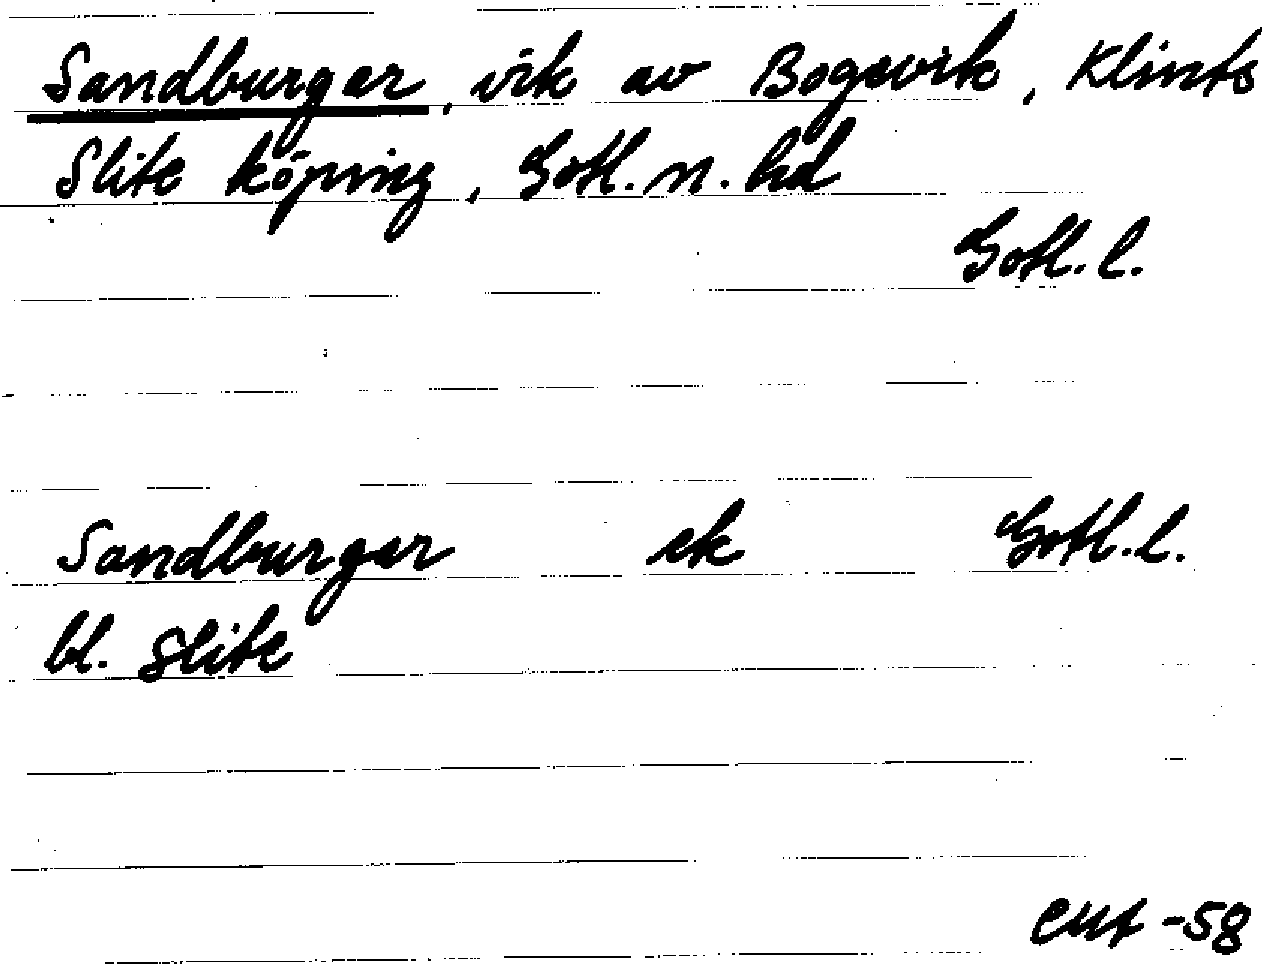 Sandburger, vik av Bogevik, Klints
Slite köping, Gotl. n. hd
Gotl. l.
Sandburger ek Gotl. l.
bl. Slite
-58